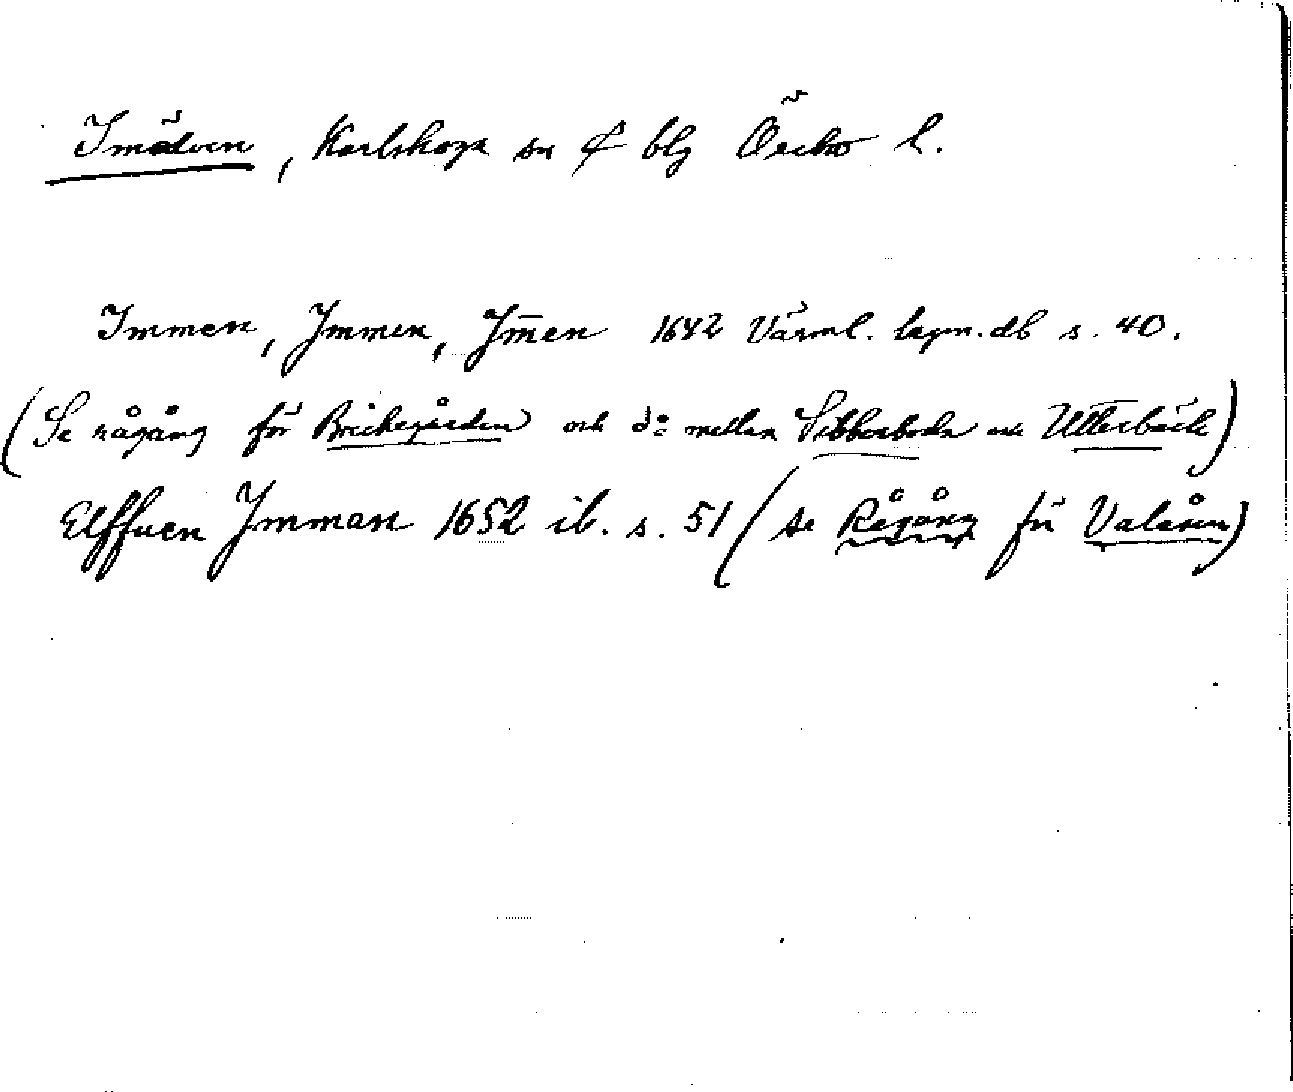 Imälven, Karlskoga sn & blg Örebro l.
Immen, Jmmen, Jm̄en 1642 Värml. lagm. db s. 40.
(Se rågång för Brickegården och d:o mellan Sibberboda och Utterbäck)
Elffuen Jmman 1652 ib. s. 51 (se Rågång för Valåsen)